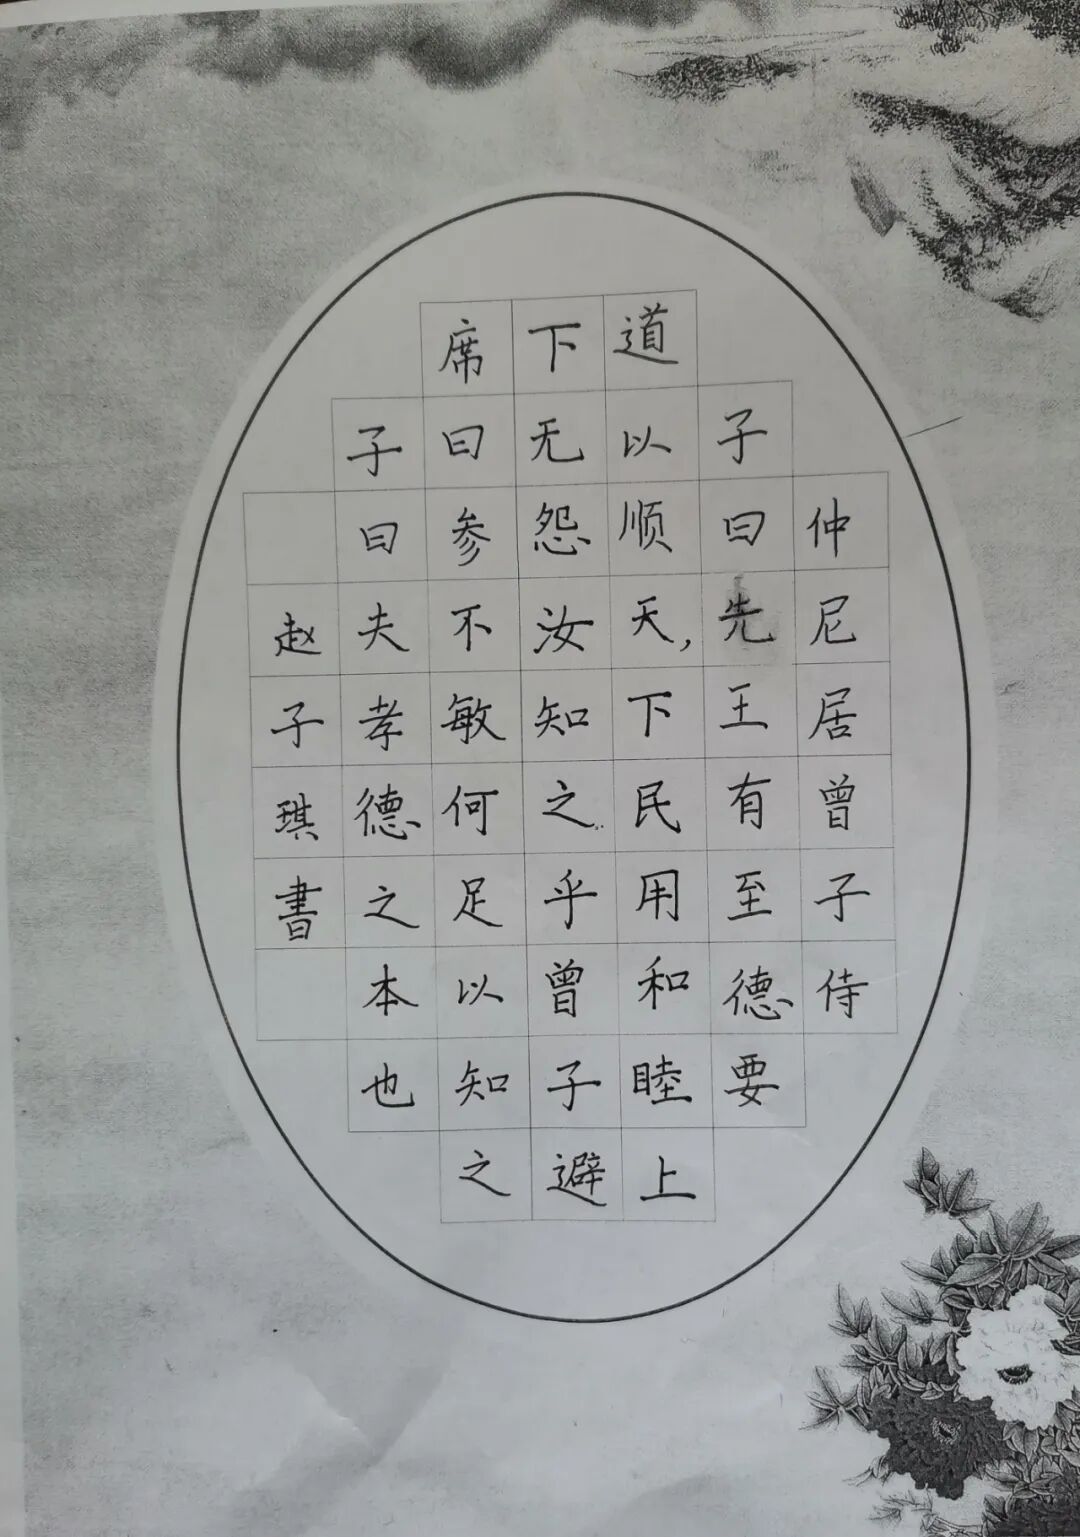 仲尼居曾子侍
子曰先王有至德要
道以顺天,下民用和睦上
下无怨汝知之乎曾子避
席曰参不敏何足以知之
子曰夫孝德之本也
赵子琪書